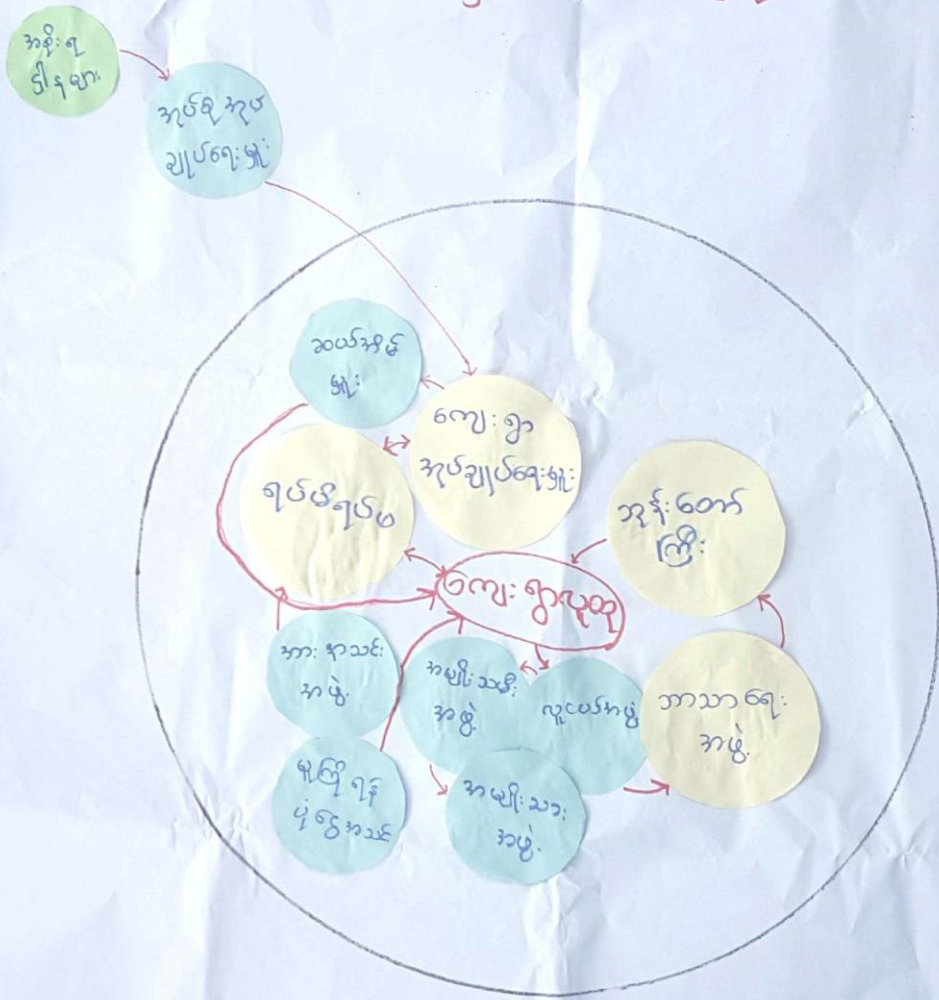 အစိုးရ
ဌါနများ
အုပ်စုအုပ်
ချုပ်ရေးမှူး
ဆယ်အိမ်
မှူး
ကျေးရွာ
အုပ်ချုပ်ရေးမှူး
ရပ်မိရပ်ဖ
ဘုန်းတော်
ကြီး
ကျေးရွာလူထု
အားနာသင်း
အဖွဲ့
အမျိုးသမီး
အဖွဲ့
လူငယ်အဖွဲ့
ဘာသာရေး
အဖွဲ့
ရန်
ပုံငွေအသင်း
အမျိုးသား
အဖွဲ့